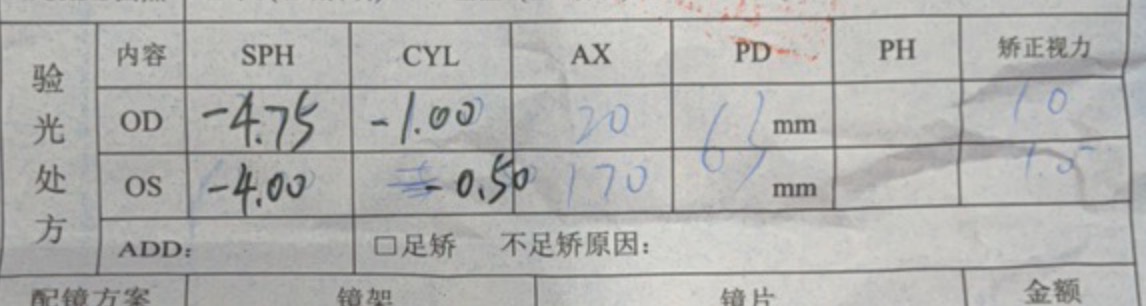 验光处方
内容 SPH CYL AX PD PH 矫正视力
OD -4.75 -1.00 20 63 mm 1.0
OS -4.00 -0.50 170 mm 1.0
ADD:
□足矫 不足矫原因:
配镜方案 镜架 镜片 金额